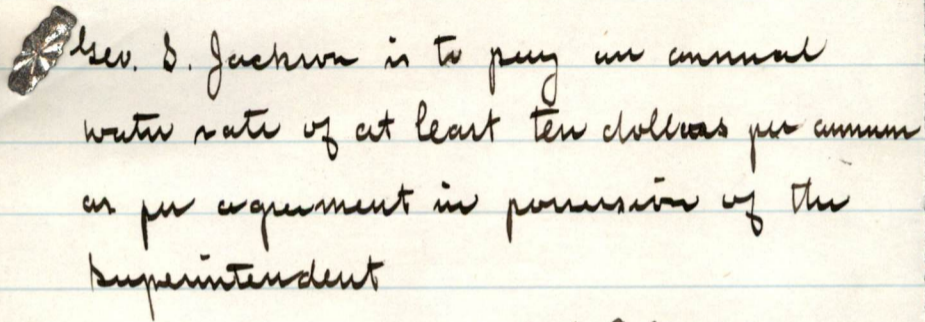 Geo. S. Jackson is to pay an annual
water rate of at least ten dollars per annum
as per agreement in possession of the
Superintendent